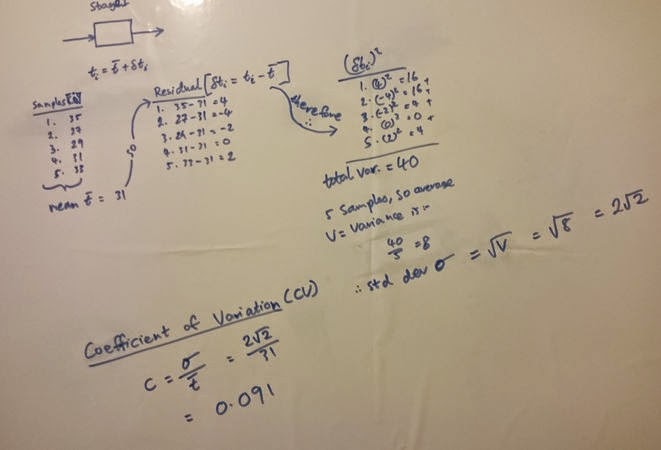 Stage 1
tᵢ = t̄ + δtᵢ
Samples [tᵢ]
1. 35
2. 27
3. 29
4. 31
5. 33
mean t̄ = 31
so
Residual [δtᵢ = tᵢ - t̄]
1. 35-31 = 4
2. 27-31 = -4
3. 29-31 = -2
4. 31-31 = 0
5. 33-31 = 2
therefore
∴
(δtᵢ)²
1. (4)² = 16 +
2. (-4)² = 16 +
3. (-2)² = 4 +
4. (0)² = 0 +
5. (2)² = 4
total var. = 40
5 samples, so average
V = variance is :-
40/5 = 8
∴ std dev σ = √V = √8 = 2√2
Coefficient of Variation (CV)
C = σ/t̄ = 2√2/31
= 0.091